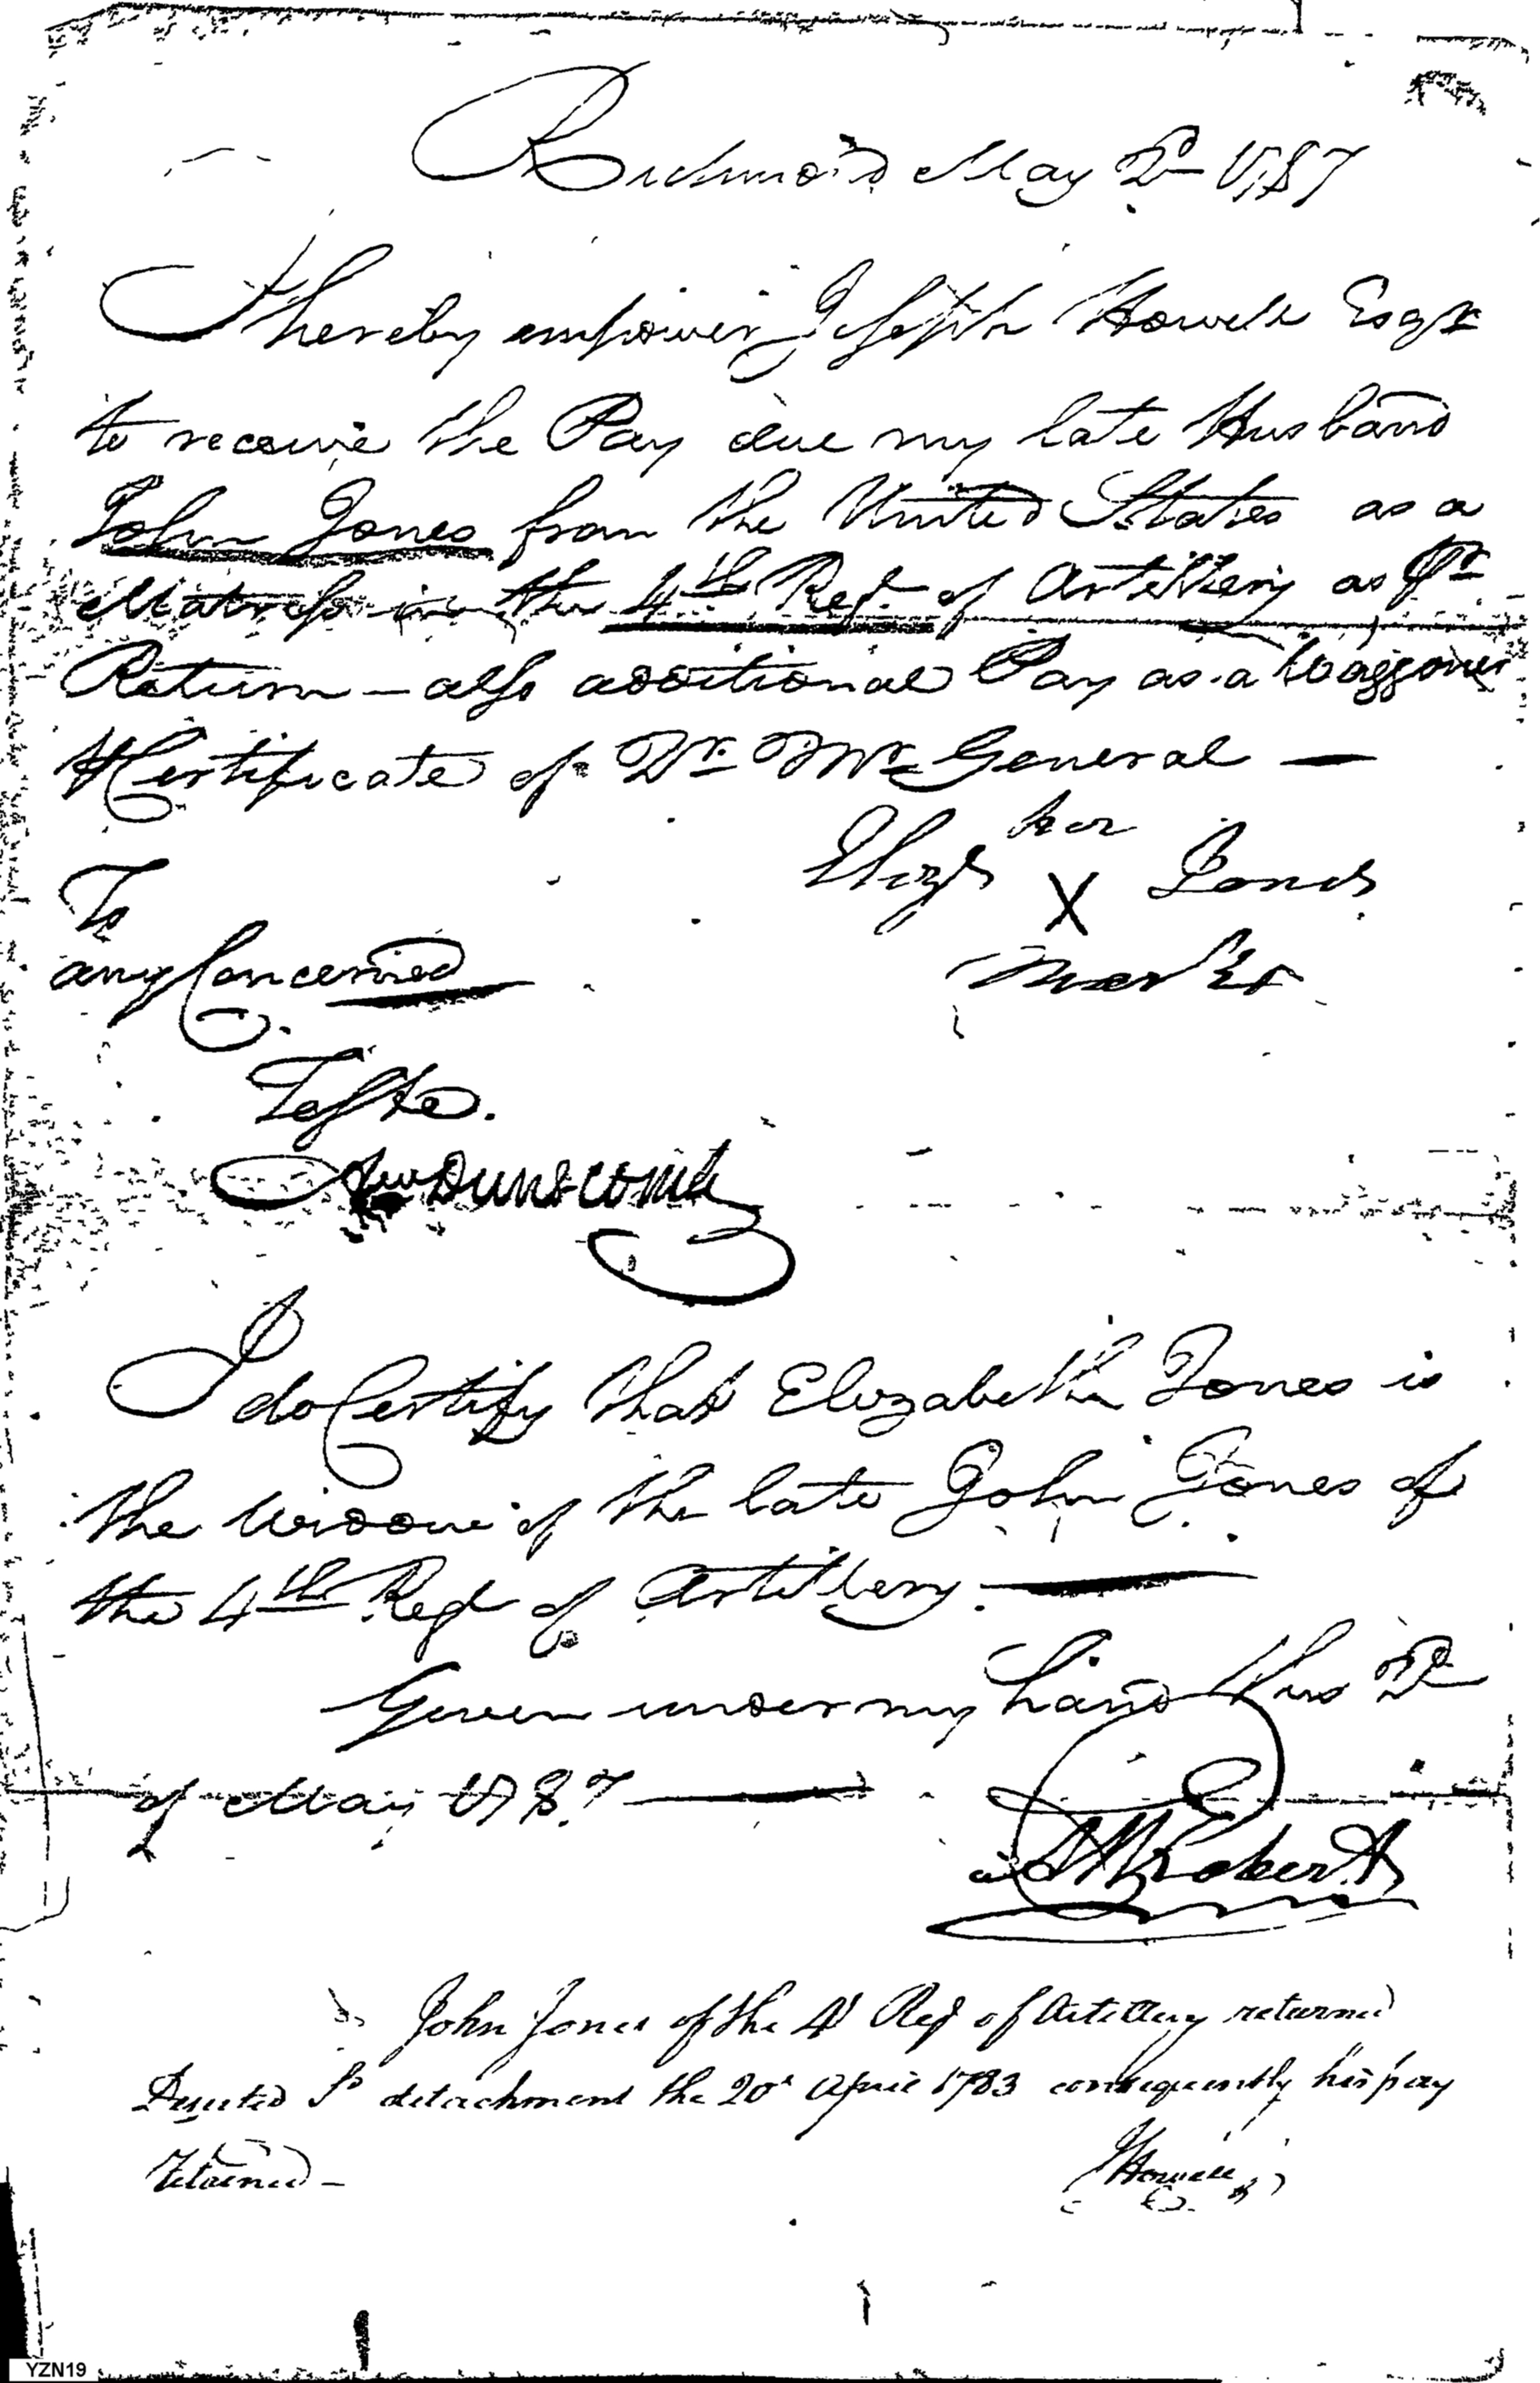 Richmond May 2d 1787
I hereby empower Joseph Howell Esqr
to receive the Pay due my late Husband
John Jones from the United States as a
Matross in the 4th Regt of Artillery as Pr
Return – also additional Pay as a Waggoner
Certificate of Qr Mr General —
her
Elizh X Jones
mark
To
any Concerned
Teste.
Dunscomb
I do Certify that Elizabeth Jones is
the Widow of the late John Jones of
the 4th Regt of Artillery. —
Given under my hand this 2d
of May 1787 —
Roberts
John Jones of the 4t Regt of Artillery returned
Deserted detachment the 20t April 1783 consequently his pay
retained –
J Howell
YZN19